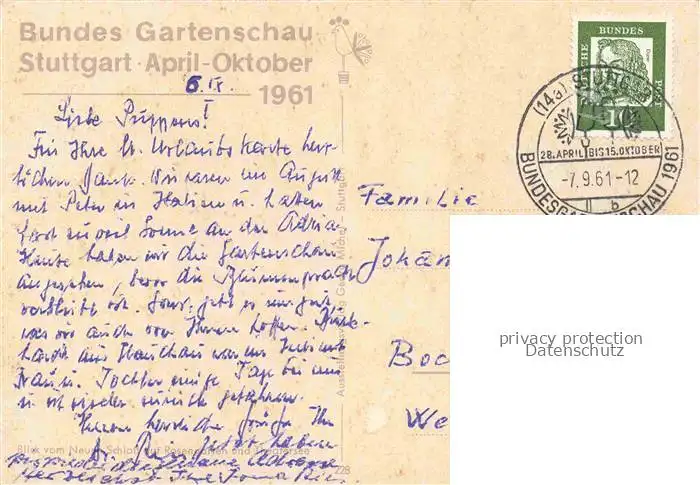 Bundes Gartenschau
Stuttgart · April-Oktober
1961
6.IX.
Liebe Puppens!
Für Ihre lb. Urlaubskarte herz-
lichen Dank. Wir waren im August
mit Peter in Italien u. haben
fast zu viel Sonne an der Adria
Heute haben wir die Gartenschau
angesehen, bevor die Blumenpracht
verblüht ist. Sonst geht es uns gut,
was wir auch von Ihnen hoffen.
aus war
Frau u. Tochter einige Tage bei uns
u. ist wieder zurück gefahren.
herzliche Grüße Ihr
Blick vom Neuen Schloß auf Rosengarten und Theatersee
228
Familie
Johan
Boc
We
DEUTSCHE BUNDES POST
Dürer
10
(14a) STUTTGART
28. APRIL BIS 15. OKTOBER
-7.9.61-12
b
BUNDESGARTENSCHAU 1961
privacy protection
Datenschutz